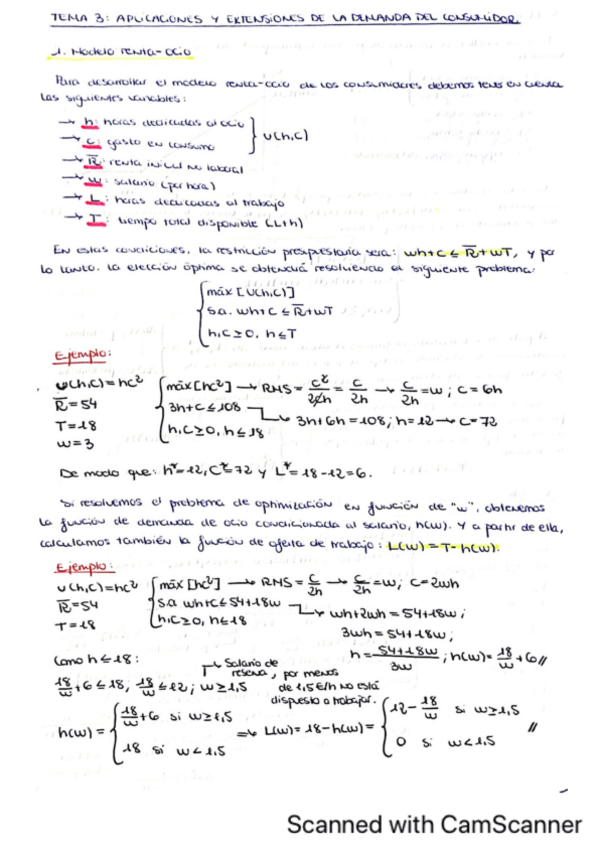 TEMA 3: APLICACIONES Y EXTENSIONES DE LA DEMANDA DEL CONSUMIDOR.
1. Modelo renta-ocio
Para desarrollar el modelo renta-ocio de los consumidores debemos tener en cuenta
las siguientes variables:
→ h: horas dedicadas al ocio
→ c: gasto en consumo } U(h,c)
→ R̅: renta inicial no laboral
→ w: salario (por hora)
→ L: horas dedicadas al trabajo
→ T: tiempo total disponible (L+h)
En estas condiciones, la restricción presupuestaria será: wh+c ≤ R̅+wT, y por
lo tanto, la elección óptima se obtendrá resolviendo el siguiente problema:
máx [U(h,c)]
s.a. wh+c ≤ R̅+wT
h,c ≥ 0, h ≤ T
Ejemplo:
U(h,c) = hc² { máx [hc²] → RMS = c²/2hc = c/2h → c/2h = w ; c = 6h
R̅ = 54 3h+c ≤ 108 → 3h+6h = 108; h = 12 → c = 72
T = 18 h,c ≥ 0, h ≤ 18
w = 3
De modo que: h* = 12, c* = 72 y L* = 18-12 = 6.
Si resolvemos el problema de optimización en función de "w", obtenemos
la función de demanda de ocio condicionada al salario, h(w). Y a partir de ella,
calculamos también la función de oferta de trabajo: L(w) = T-h(w).
Ejemplo:
U(h,c) = hc² { máx [hc²] → RMS = c/2h → c/2h = w; c = 2wh
R̅ = 54 s.a wh+c ≤ 54+18w → wh+2wh = 54+18w ;
T = 18 h,c ≥ 0, h ≤ 18 3wh = 54+18w ;
Como h ≤ 18: h = 54+18w/3w ; h(w) = 18/w + 6 //
18/w + 6 ≤ 18; 18/w ≤ 12 ; w ≥ 1,5
Salario de
reserva, por menos
de 1,5€/h no está
dispuesto a trabajar.
h(w) = { 18/w + 6 si w ≥ 1,5 ⇒ L(w) = 18-h(w) = { 12 - 18/w si w ≥ 1,5 //
18 si w < 1,5 0 si w < 1,5
Scanned with CamScanner